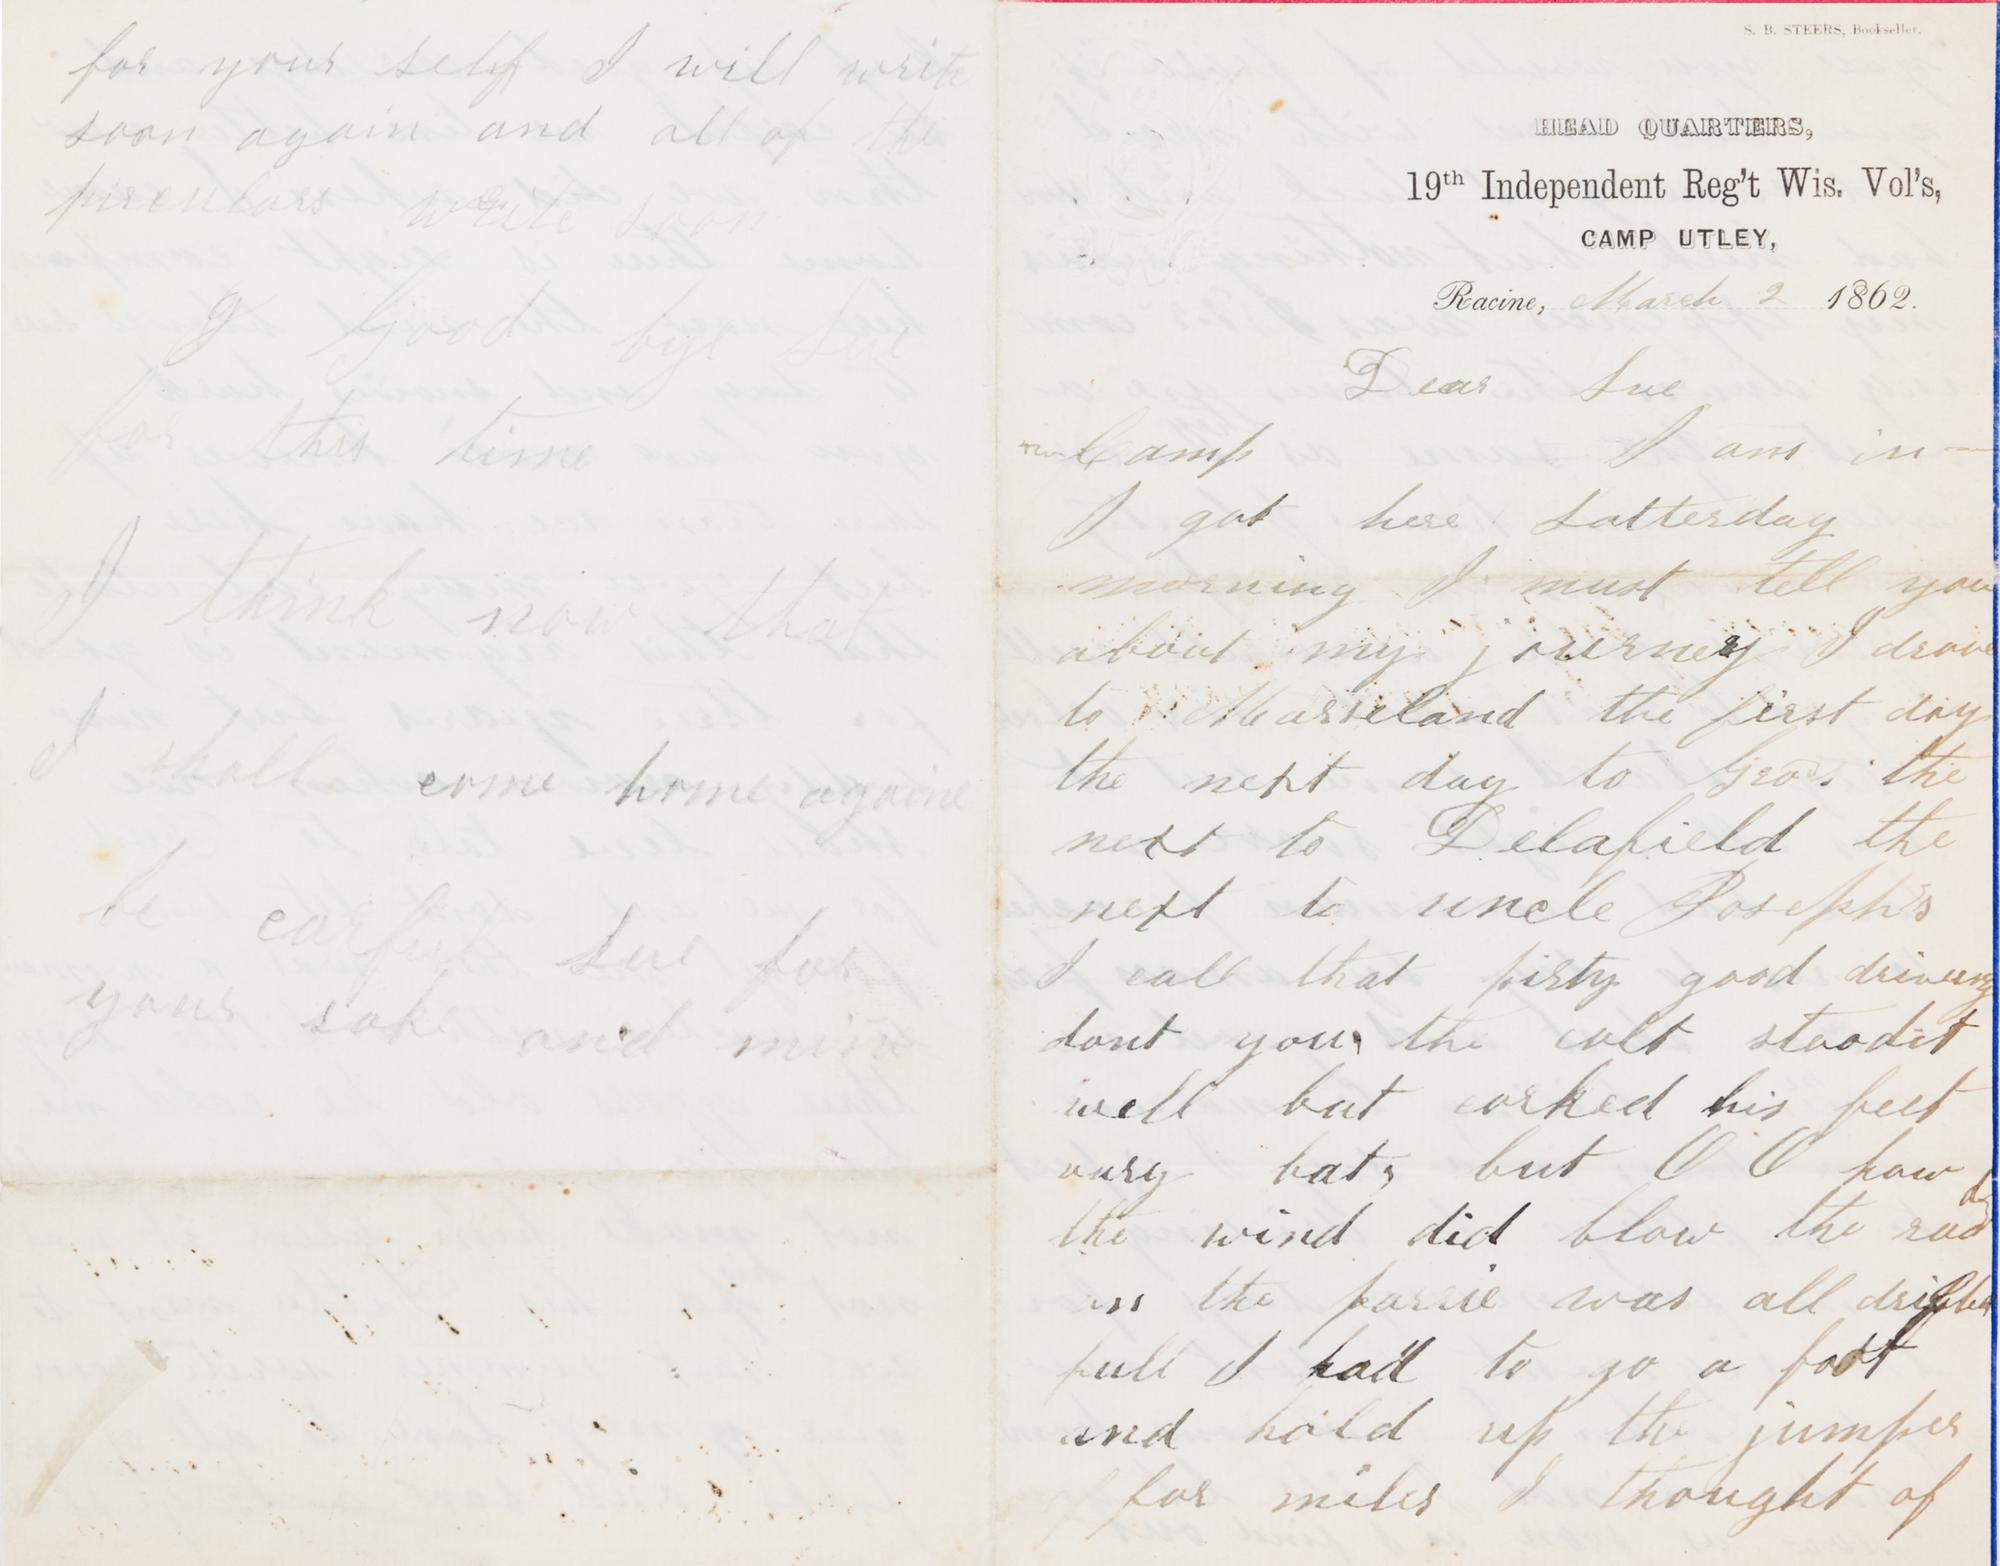 for your self I will write
soon again and all of the
pirenlars write soon
g Good bye Sue
for this time
I think now that
I shall come home againe
be carful Sue for
your sake and mine
S. B. STEERS, Bookseller.
HEAD QUARTERS,
19th Independent Reg't Wis. Vol's,
CAMP UTLEY,
Racine, March 2 1862.
Dear Sue
Camp I am in
I got here Satterday
morning I must tell you
about my journey I drove
to Marseland the first day
the next day to the
next to Delafield the
next to uncle Joseph's
I call that pirty good driveing
dont you the colt stoodit
well but corked his feet
vary bat; but O O how
the wind did blow the rod
on the parrie was all drifted
full I had to go a foot
and hold up the jumper
for miles I thought of